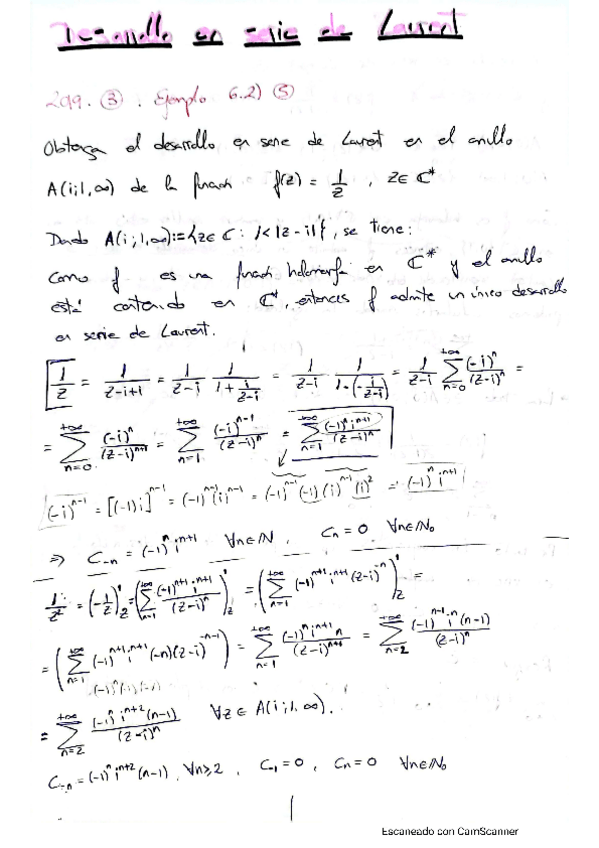 Desarrollo en serie de Laurent
2019. ③. Ejemplo 6.2) ⑤
Obtenga el desarrollo en serie de Laurent en el anillo
A(i;1,∞) de la función f(z) = 1/z , z∈ ℂ*
Dado A(i;1,∞):={z∈ ℂ: 1<|z-i|}, se tiene:
Como f es una función holomorfa en ℂ* y el anillo
está contenido en ℂ*, entonces f admite un único desarrollo
en serie de Laurent.
1/z = 1/(z-i+i) = 1/(z-i) 1/(1+i/(z-i)) = 1/(z-i) 1/(1-(-i/(z-i))) = 1/(z-i) ∑_{n=0}^{+∞} (-i)^n/(z-i)^n =
= ∑_{n=0}^{+∞} (-i)^n/(z-i)^{n+1} = ∑_{n=1}^{+∞} (-i)^{n-1}/(z-i)^n = ∑_{n=1}^{+∞} (-1)^n i^{n+1}/(z-i)^n
(-i)^{n-1} = [(-1)i]^{n-1} = (-1)^{n-1}(i)^{n-1} = (-1)^{n-1}(-1)(i)^{n-1}(i)^2 = (-1)^n i^{n+1}
⇒ C_{-n} = (-1)^n i^{n+1} ∀n∈ℕ, C_n = 0 ∀n∈ℕ₀
1/z² = (-1/z)'_z = (∑_{n=1}^{+∞} (-1)^{n+1} i^{n+1}/(z-i)^n)'_z = (∑_{n=1}^{+∞} (-1)^{n+1} i^{n+1} (z-i)^{-n})'_z =
= (∑_{n=1}^{+∞} (-1)^{n+1} i^{n+1} (-n)(z-i)^{-n-1}) = ∑_{n=1}^{+∞} (-1)^n i^{n+1} n/(z-i)^{n+1} = ∑_{n=2}^{+∞} (-1)^{n-1} i^n (n-1)/(z-i)^n
(-1)^n(-1)(-1)
= ∑_{n=2}^{+∞} (-1)^n i^{n+2} (n-1)/(z-i)^n ∀z∈ A(i;1,∞).
C_{-n} = (-1)^n i^{n+2} (n-1), ∀n≥2, C_{-1} = 0, C_n = 0 ∀n∈ℕ₀
Escaneado con CamScanner